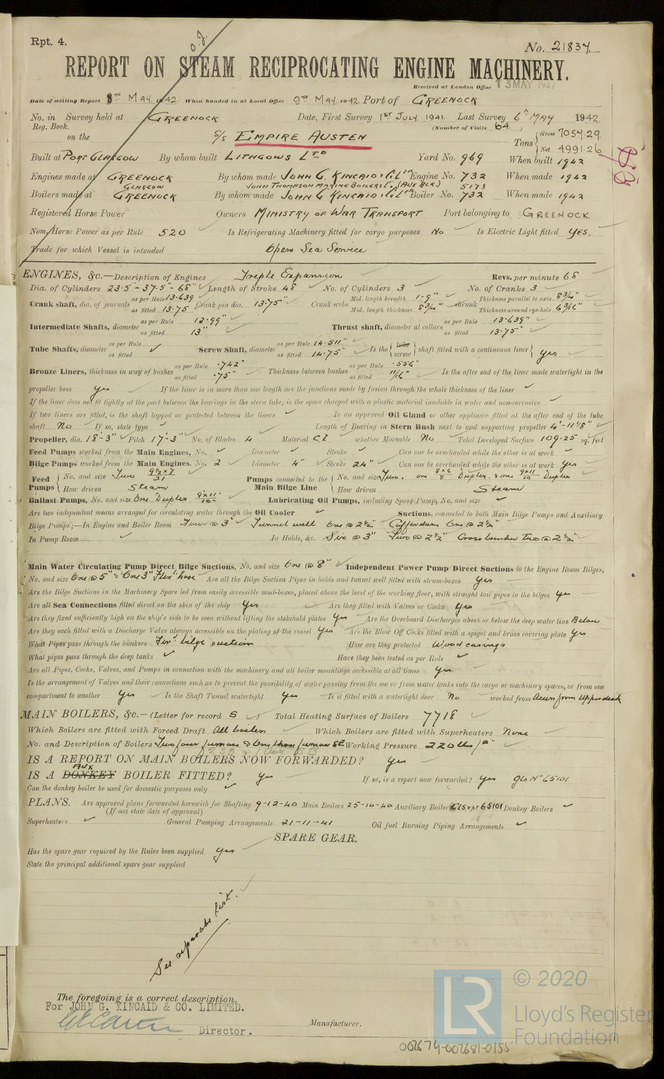 Rpt. 4.
No. 21837
REPORT ON STEAM RECIPROCATING ENGINE MACHINERY.
Received at London Office 13 MAY
Date of writing Report 8TH MAY 1942 When handed in at Local Office 9TH MAY 1942 Port of GREENOCK
No. in Reg. Book. Survey held at GREENOCK Date, First Survey 1ST JULY 1941 Last Survey 6TH MAY 1942
(Number of Visits 64)
on the S/S EMPIRE AUSTEN Tons Gross 7054.29 Net 4991.26
Built at PORT GLASGOW By whom built LITHGOWS LTD Yard No. 969 When built 1942
Engines made at GREENOCK By whom made JOHN G. KINCAID & Co Ltd Engine No. 732 when made 1942
GLASGOW JOHN THOMPSON MARINE BOILERS (AUX BLR) 5173
Boilers made at GREENOCK By whom made JOHN G KINCAID & Co Ltd Boiler No. 732 When made 1942
Registered Horse Power Owners MINISTRY OF WAR TRANSPORT Port belonging to GREENOCK
Nom. Horse Power as per Rule 520 Is Refrigerating Machinery fitted for cargo purposes No Is Electric Light fitted YES.
Trade for which Vessel is intended Open Sea Service
ENGINES, &c.—Description of Engines Treple Expansion Revs. per minute 68
Dia. of Cylinders 23.5 - 37.5 - 68" Length of Stroke 48 No. of Cylinders 3 No. of Cranks 3
Crank shaft, dia. of journals as per Rule 13.639 as fitted 13.75 Crank pin dia. 13.75" Crank webs Mid. length breadth 1-9" Mid. length thickness 8 3/4" shrunk Thickness parallel to axis 8 3/4" Thickness around eye-hole 6 3/16"
Intermediate Shafts, diameter as per Rule 12.99" as fitted 13" Thrust shaft, diameter at collars as per Rule 13.639" as fitted 13.75"
Tube Shafts, diameter as per Rule as fitted Screw Shaft, diameter as per Rule 14.511" as fitted 14.75" Is the {tube screw} shaft fitted with a continuous liner yes
Bronze Liners, thickness in way of bushes as per Rule .742" as fitted .75" Thickness between bushes as per Rule .556" as fitted 11/16" Is the after end of the liner made watertight in the
propeller boss yes If the liner is in more than one length are the junctions made by fusion through the whole thickness of the liner
If the liner does not fit tightly at the part between the bearings in the stern tube, is the space charged with a plastic material insoluble in water and non-corrosive
If two liners are fitted, is the shaft lapped or protected between the liners Is an approved Oil Gland or other appliance fitted at the after end of the tube
shaft No If so, state type Length of Bearing in Stern Bush next to and supporting propeller 4'-11 1/8"
Propeller, dia. 18-3" Pitch 17'-3" No. of Blades 4 Material C I whether Moveable No Total Developed Surface 109.25 sq. feet
Feed Pumps worked from the Main Engines, No. Diameter Stroke Can one be overhauled while the other is at work
Bilge Pumps worked from the Main Engines, No. 2 Diameter 4" Stroke 24" Can one be overhauled while the other is at work Yes
Feed Pumps No. and size Two 9 1/2 x 7 / 21 How driven Steam Pumps connected to the Main Bilge Line No. and size Two. one Duplex & one Duplex How driven Steam
Ballast Pumps, No. and size One Duplex 9x11"/10" Lubricating Oil Pumps, including Spare Pump, No. and size
Are two independent means arranged for circulating water through the Oil Cooler Suctions, connected to both Main Bilge Pumps and Auxiliary
Bilge Pumps;—In Engine and Boiler Room Four @ 3" Tunnel well One @ 2 1/2" Cofferdam One @ 2 1/2"
In Pump Room In Holds, &c. Six @ 3" Two @ 2 1/2" Cross bunker Two @ 2 1/2"
Main Water Circulating Pump Direct Bilge Suctions, No. and size One @ 8" Independent Power Pump Direct Suctions to the Engine Room Bilges,
No. and size One @ 5" & One 3" Flex' hose Are all the Bilge Suction Pipes in holds and tunnel well fitted with strum-boxes yes
Are the Bilge Suctions in the Machinery Space led from easily accessible mud-boxes, placed above the level of the working floor, with straight tail pipes to the bilges yes
Are all Sea Connections fitted direct on the skin of the ship yes Are they fitted with Valves or Cocks yes
Are they fixed sufficiently high on the ship's side to be seen without lifting the stokehold plates yes Are the Overboard Discharges above or below the deep water line Below
Are they each fitted with a Discharge Valve always accessible on the plating of the vessel yes Are the Blow Off Cocks fitted with a spigot and brass covering plate yes
What Pipes pass through the bunkers For' bilge suctions How are they protected Wood casings
What pipes pass through the deep tanks Have they been tested as per Rule
Are all Pipes, Cocks, Valves, and Pumps in connection with the machinery and all boiler mountings accessible at all times Yes
Is the arrangement of Valves and their connections such as to prevent the possibility of water passing from the sea or from water tanks into the cargo or machinery spaces, or from one
compartment to another yes Is the Shaft Tunnel watertight yes Is it fitted with a watertight door No worked from Access from Upper deck
MAIN BOILERS, &c.—(Letter for record S) Total Heating Surface of Boilers 7718
Which Boilers are fitted with Forced Draft All boilers Which Boilers are fitted with Superheaters None
No. and Description of Boilers Two four furnace & One three furnace SE Working Pressure 220 lbs/□"
IS A REPORT ON MAIN BOILERS NOW FORWARDED? Yes
IS A AUX DONKEY BOILER FITTED? yes If so, is a report now forwarded? yes gls No 65101
Can the donkey boiler be used for domestic purposes only
PLANS. Are approved plans forwarded herewith for Shafting 9-12-40 Main Boilers 25-10-40 Auxiliary Boilers Gls rpt 65101 Donkey Boilers
(If not state date of approval)
Superheaters General Pumping Arrangements 21-11-41 Oil fuel Burning Piping Arrangements
SPARE GEAR.
Has the spare gear required by the Rules been supplied yes
State the principal additional spare gear supplied
See separate list.
The foregoing is a correct description,
For JOHN G. KINCAID & CO. LIMITED.
Director. Manufacturer.
© 2020
LR
Lloyd's Register
Foundation
002674-002681-0155